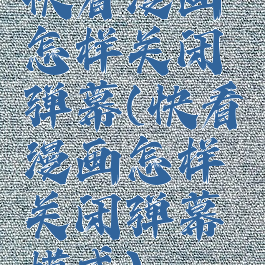 快看漫画
怎样关闭
弹幕(快看
漫画怎样
关闭弹幕
模式)